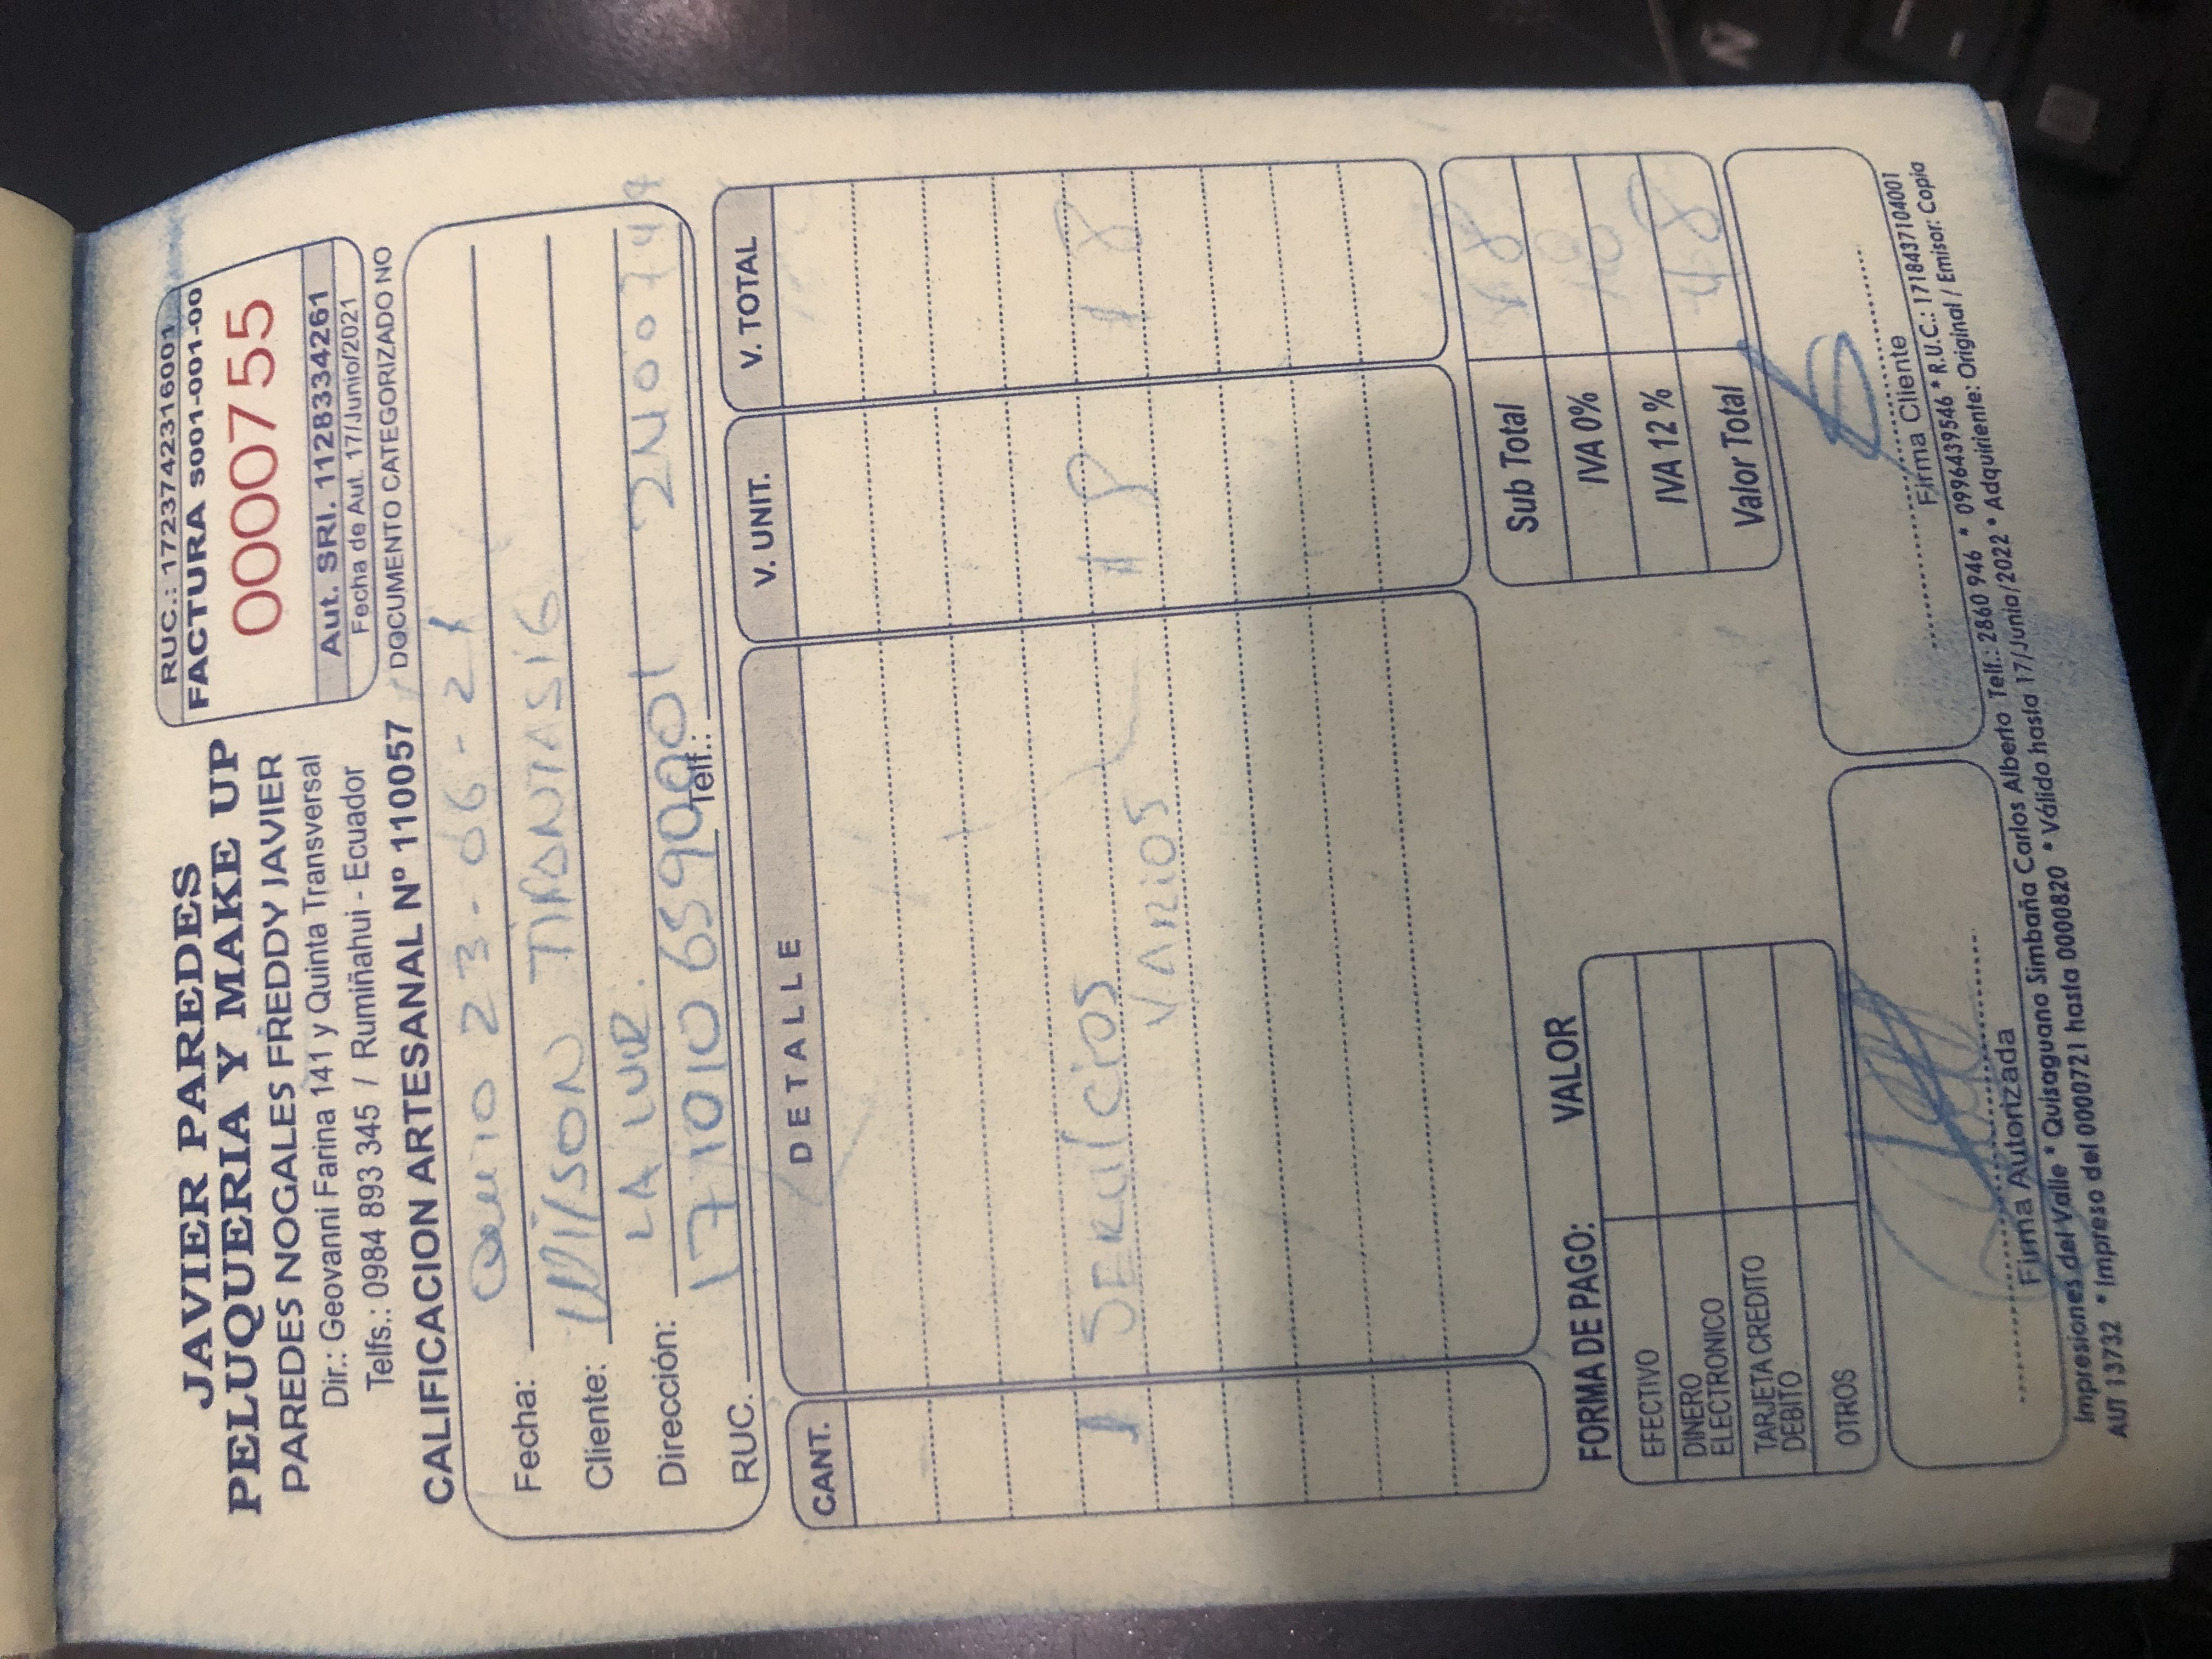 JAVIER PAREDES
PELUQUERIA Y MAKE UP
PAREDES NOGALES FREDDY JAVIER
Dir.: Geovanni Farina 141 y Quinta Transversal
Telfs.: 0984 893 345 / Rumiñahui - Ecuador
CALIFICACION ARTESANAL Nº 110057
RUC.: 1723742316001
FACTURA S001-001-00
0000755
Aut. SRI. 1128334261
Fecha de Aut. 17/Junio/2021
DOCUMENTO CATEGORIZADO NO
Fecha: Quito 23-06-21
Cliente: Wilson TIPANTASIG
Dirección: LA LUZ.
RUC. 1710106590001 Telf.:
CANT. DETALLE V. UNIT. V. TOTAL
1 SERVICIOS
VARIOS
Sub Total
IVA 0%
IVA 12 %
Valor Total
FORMA DE PAGO: VALOR
EFECTIVO
DINERO
ELECTRONICO
TARJETA CREDITO
DEBITO
OTROS
Firma Autorizada
Firma Cliente
Impresiones del Valle * Quisaguano Simbaña Carlos Alberto Telf.: 2860 946 * 0996439546 * R.U.C.: 1718437104001
AUT 13732 * Impreso del 0000721 hasta 0000820 * Válido hasta 17/Junio/2022 * Adquiriente: Original / Emisor: Copia
Ñ